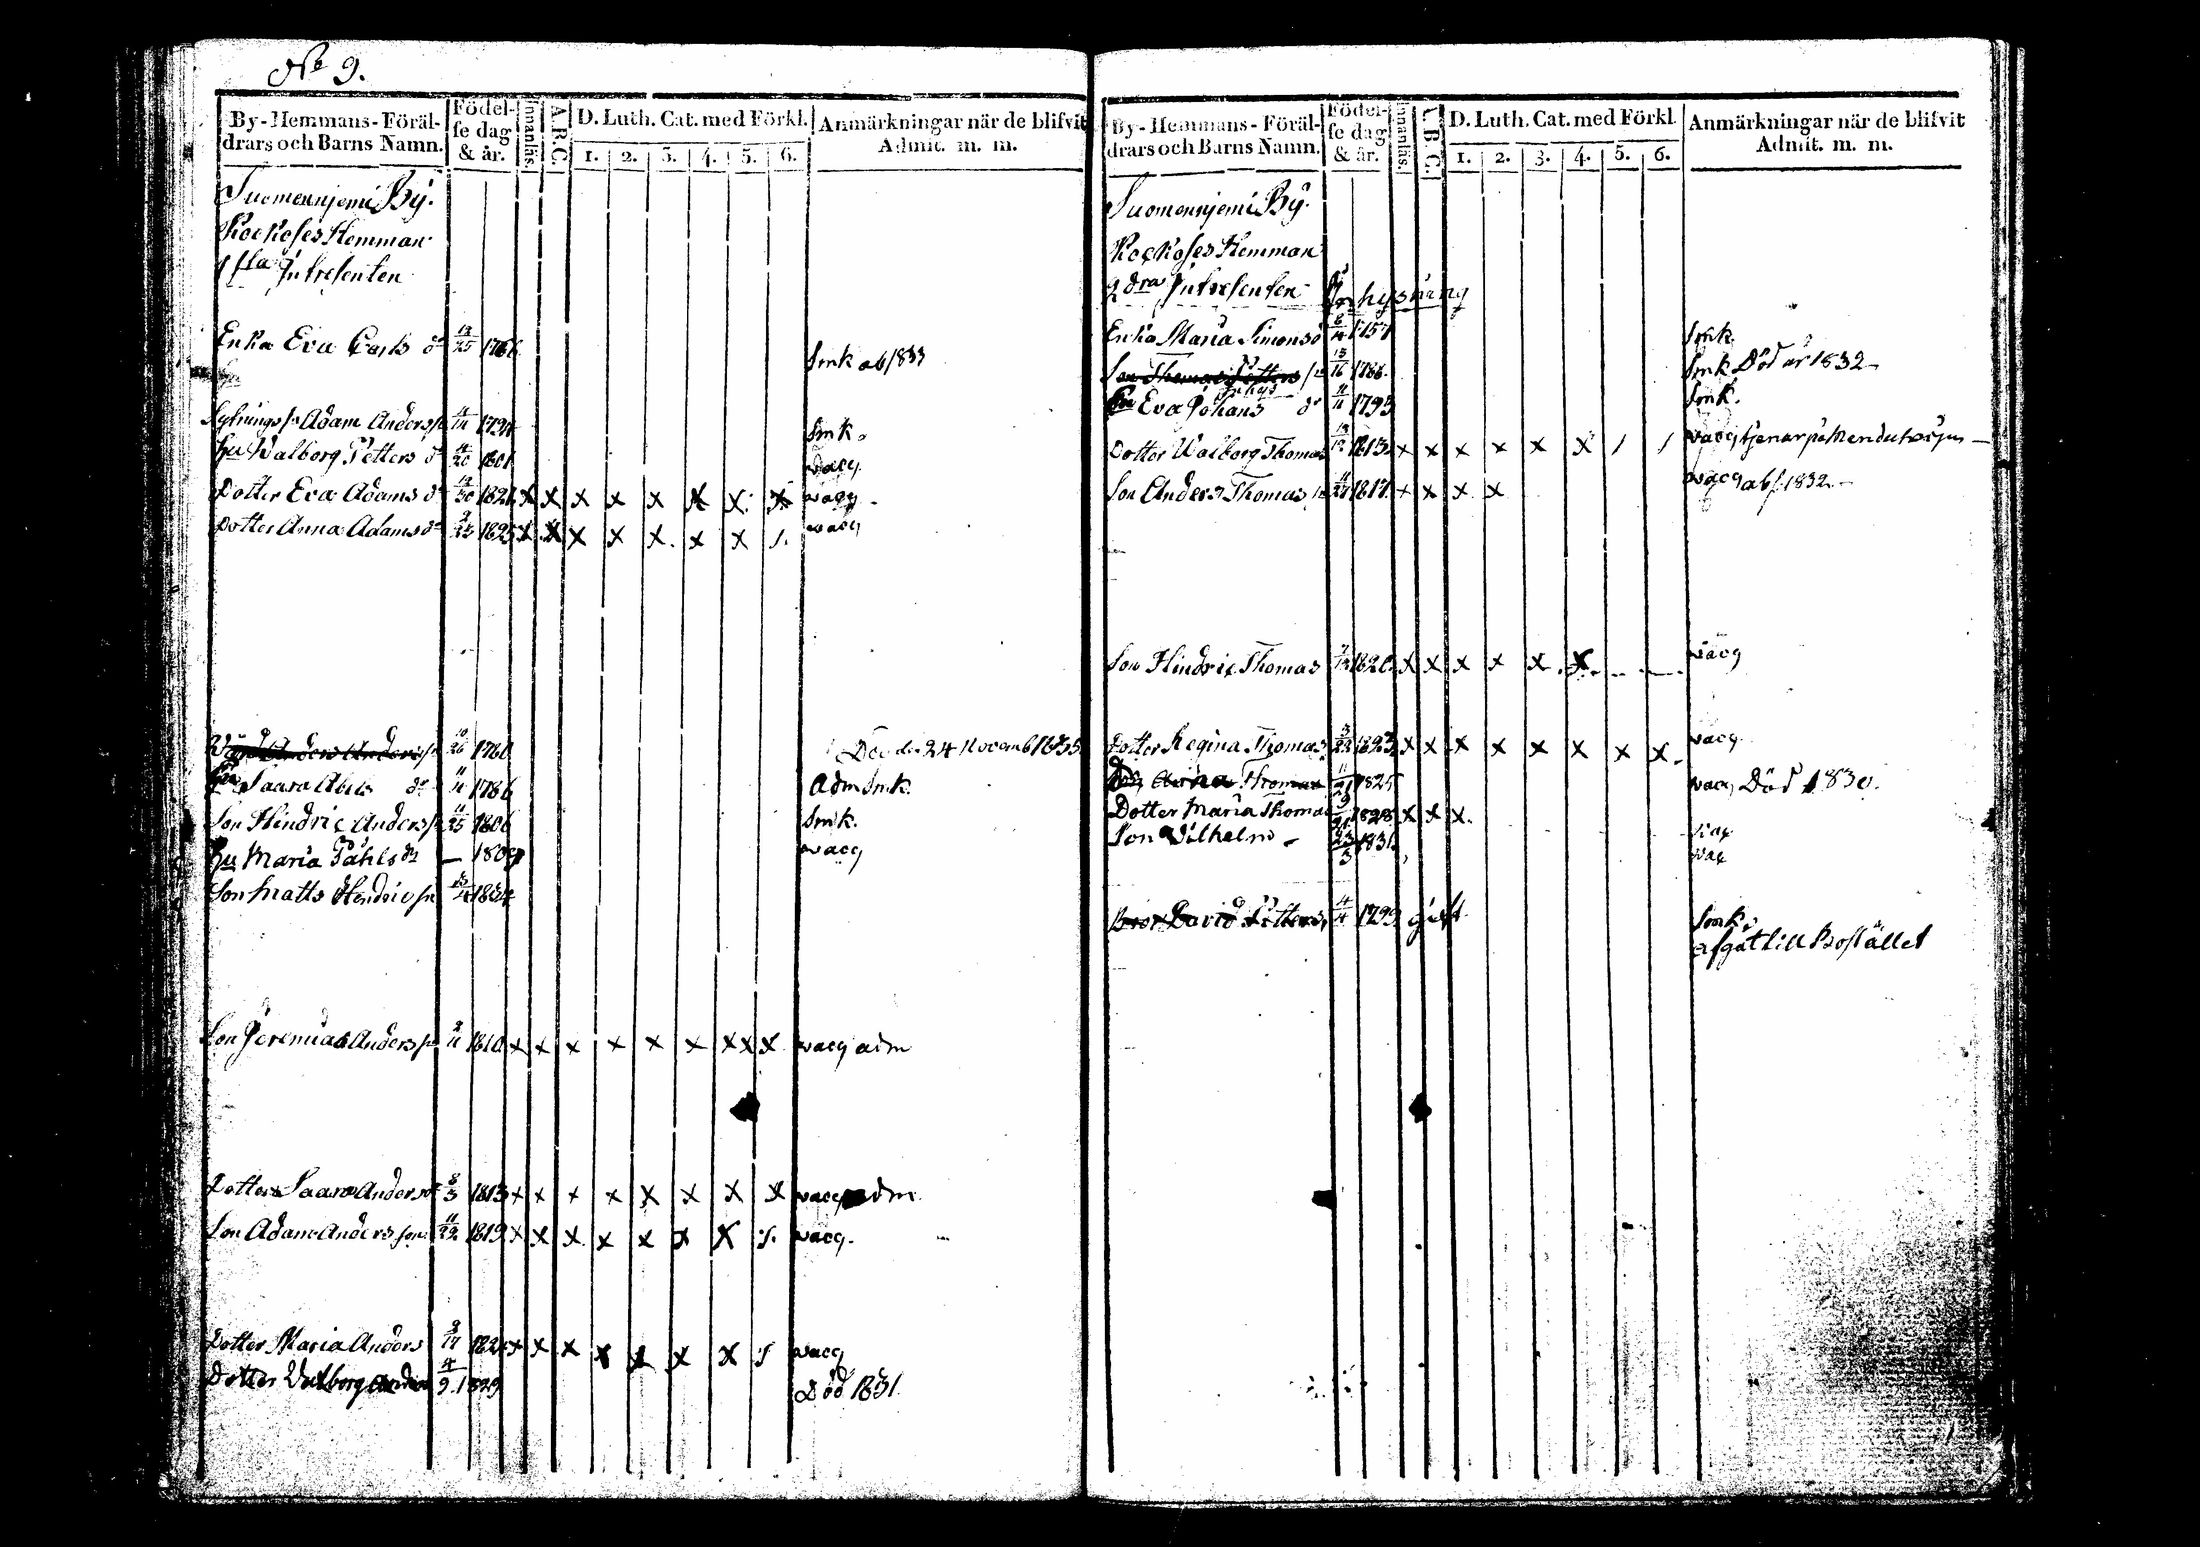 No 9.
By-Hemmans-Föräldrars och Barns Namn. Födelse dag & år. Innanläs. A.B.C. D. Luth. Cat. med Förkl. 1. 2. 3. 4. 5. 6. Anmärkningar när de blifvit Admit. m. m.
Suomenniemi By.
Kockoses Hemman
1sta Intresenten
Enka Eva Carls dr 12/25 1766 Smk abs 1833
Adam Anders sn 4/14 smk.
hu Walborg Petters dr 4/20 1801 vacc.
Dotter Eva Adams dr 12/30 182 x x x x x x x x vacc
Dotter Anna Adams dr 2/23 1825 x x x x x x x 1. vacc
Anders Anders sn 10/26 1760 24 Novemb 1835
Saara Abels dr 1786 adm smk.
Son Hindric Anders sn 11/25 1806 smk.
hu Maria Påhls dr — 180 vacc
Son Matts Hendric sn 1834
Son Jeremias Anders sn 2/11 1810 x x x x x x x x x vacc adm
Dotter Saara Anders dr 8/3 1813 x x x x x x x x vacc adm.
Son Adam Anders son 11/22 1819 x x x x x x x 1. vacc.
Dotter Maria Anders 3/17 182 x x x x x x x 1 vacc
Dotter Valborg Anders 4/9 1829 Död 1831.
By-Hemmans-Föräldrars och Barns Namn. Födelse dag & år. Innanläs. A.B.C. D. Luth. Cat. med Förkl. 1. 2. 3. 4. 5. 6. Anmärkningar när de blifvit Admit. m. m.
Suomenniemi By.
Kockoses Hemman
2dra Intresenten Inhysning
Enka Maria Simons d 1757 smk.
Son Thomas Petters sn 13/16 1786. smk Död år 1832
Inhys
Eva Johans dr 4/11 1793 smk.
Dotter Walborg Thomas 1813 x x x x x x 1 1 vacc tjenar på
Son Anders Thomas sn 11/27 1817 x x x x vacc abs. 1832.
Son Hindric Thomas 7/12 1820 x x x x x x vacc
Dotter Regina Thomas 3/22 1823 x x x x x x x x vacc
Anna Thomas 11/21 1825 vacc Död 1830.
Dotter Maria Thomas 9/21 1828 x x x. vac
Son Vilhelm 23/3 1831 vac
Bror David Petters 4/4 1799 gift smk.
afgåt till Bostället